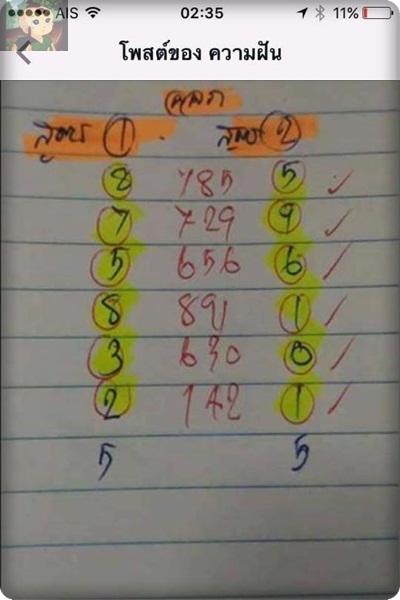 AIS 02:35 11%
โพสต์ของ ความฝัน
สูตร 1 สูตร 2
8 785 5
7 729 9
5 656 6
8 891 1
3 630 0
2 142 1
5 5